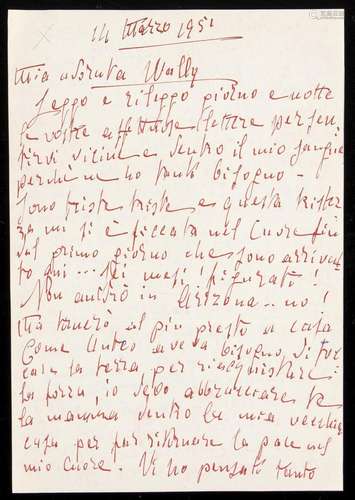 14 Marzo 1951
Mia adorata Wally
Leggo e rileggo giorno e notte
le vostre affettuose lettere per sen
tirvi vicine e dentro il mio sangue
perché ne ho tanto bisogno -
Sono triste triste e questa tristez
za mi si è ficcata nel cuore fin
dal primo giorno che sono arriva
to qui ... Sei mesi! figurati!
Non andrò in Arizona .. no!
Ma tornerò al più presto a casa
Come Anteo aveva bisogno di toc
care la terra per riacquistare
la forza, io devo abbracciare
la mamma dentro la mia vecchia
casa per far ritornare la pace nel
mio cuore. Vi ho pensate tanto